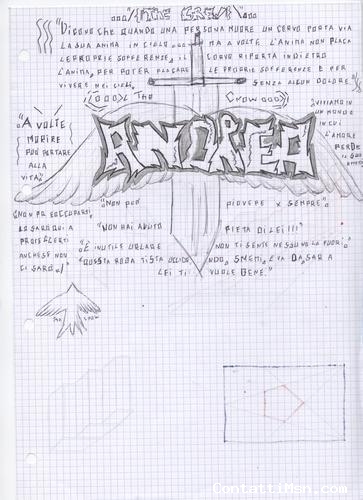 ...\THE CROW/...
"DICONO CHE QUANDO UNA PERSONA MUORE UN CORVO PORTA VIA
LA SUA ANIMA IN CIELO... MA A VOLTE L'ANIMA NON PLACA
LE PROPRIE SOFFERENZE, IL CORVO RIPORTA INDIETRO
L'ANIMA, PER POTER PLACARE LE PROPRIE SOFFERENZE E PER
VIVERE NEI CIELI, SENZA ALCUN DOLORE."
(ooo)( The Crow ooo)
"A VOLTE
MORIRE
PUÒ PORTARE
ALLA
VITA"
ANDREA
"VIVIAMO IN
UN MONDO
IN CUI
L'AMORE
PERDE
IL SUO
"NON PUO' PIOVERE X SEMPRE"
"NON HAI AVUTO PIETA DI LEI!!!"
"È INUTILE URLARE NON TI SENTE NESSUNO LA FUORI"
"QUESTA ROBA TI STA UCCIDENDO, SMETTI, E VA DA SARA
LEI TI VUOLE BENE."
NON PREOCCUPARTI,
LO SARÒ QUI A
PROTEGGERTI
ANCHE SE NON
CI SARÒ!
THE CROW
ContattiMsn.com